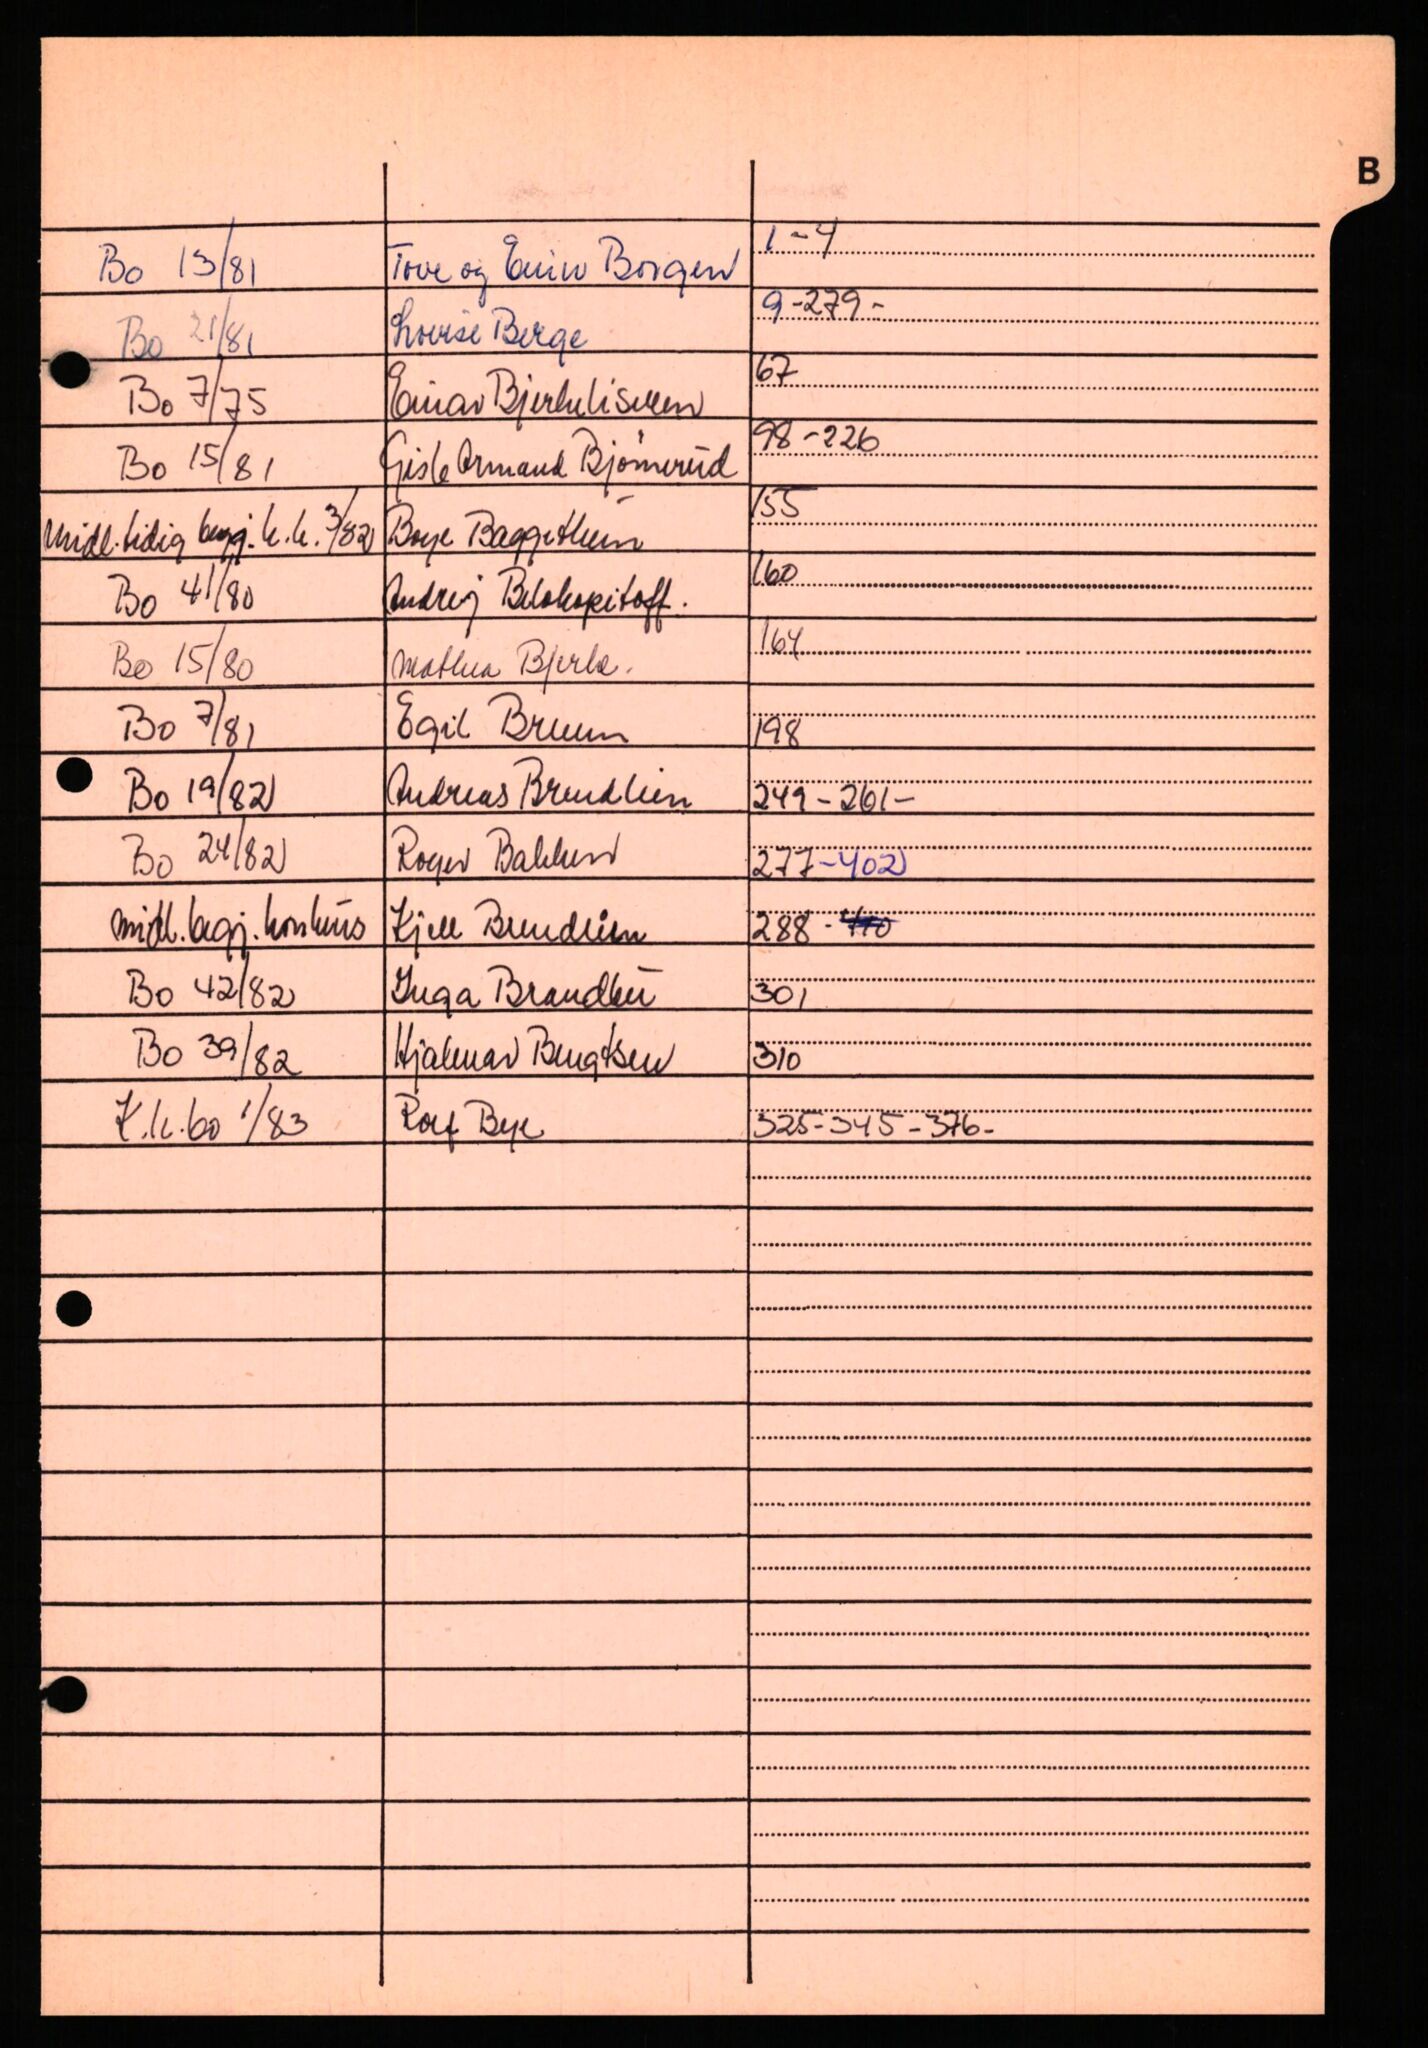 B
Bo 13/81 Tove og Einar Borgen 1-4
Bo 21/81 Lovise Berge 9-279-
Bo 7/75 Einar Bjerkelisveen 67
Bo 15/81 Gisle Armand Bjørnerud 98-226
midl.tidig begj. k.k. 3/82 Boye Baggethun 155
Bo 41/80 Andrej Belokopitoff. 160
Bo 15/80 Mathea Bjerke. 164
Bo 7/81 Egil Bruun 198
Bo 19/82 Andreas Brendlien 249-261-
Bo 24/82 Roger Bakken 277-402
midl. begj. konkurs Kjell Brendlien 288-
Bo 42/82 Inga Brandlii 301
Bo 39/82 Hjalmar Bengtsen 310
K.k.bo 1/83 Rolf Bye 325-345-376-